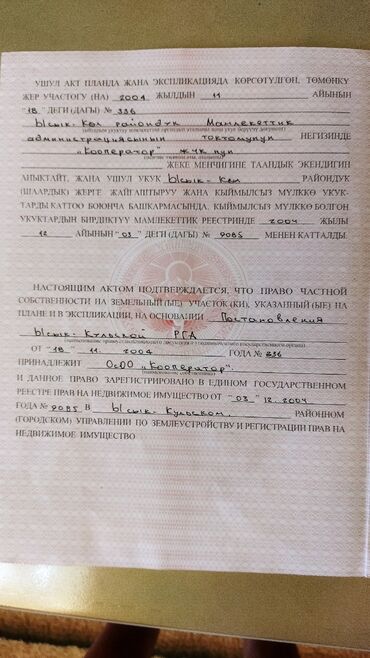 УШУЛ АКТ ПЛАНДА ЖАНА ЭКСПЛИКАЦИЯДА КӨРСӨТҮЛГӨН, ТӨМӨНКҮ
ЖЕР УЧАСТОГУ (НА) 2004 ЖЫЛДЫН 11 АЙЫНЫН
"18" ДЕГИ (ДАГЫ) № 336
Ысык-Көл райондук Мамлекеттик
администрациясынын токтомунун НЕГИЗИНДЕ
"Кооператор" ЖЧК нун
ЖЕКЕ МЕНЧИГИНЕ ТААНДЫК ЭКЕНДИГИН
АНЫКТАЙТ, ЖАНА УШУЛ УКУК Ысык-Көл РАЙОНДУК
(ШААРДЫК) ЖЕРГЕ ЖАЙГАШТЫРУУ ЖАНА КЫЙМЫЛСЫЗ МҮЛККӨ УКУК-
ТАРДЫ КАТТОО БОЮНЧА БАШКАРМАСЫНДА, КЫЙМЫЛСЫЗ МҮЛККӨ БОЛГОН
УКУКТАРДЫН БИРДИКТҮҮ МАМЛЕКЕТТИК РЕЕСТРИНДЕ 2004 ЖЫЛЫ
12 АЙЫНЫН "03" ДЕГИ (ДАГЫ) № 9085 МЕНЕН КАТТАЛДЫ.
НАСТОЯЩИМ АКТОМ ПОДТВЕРЖДАЕТСЯ, ЧТО ПРАВО ЧАСТНОЙ
СОБСТВЕННОСТИ НА ЗЕМЕЛЬНЫЙ (ЫЕ) УЧАСТОК (КИ), УКАЗАННЫЙ (ЫЕ) НА
ПЛАНЕ И В ЭКСПЛИКАЦИИ, НА ОСНОВАНИИ Постановления
Ысык-Кульской РГА
ОТ "18" 11. 2004 ГОДА № 336
ПРИНАДЛЕЖИТ ОсОО "Кооператор".
И ДАННОЕ ПРАВО ЗАРЕГИСТРИРОВАНО В ЕДИНОМ ГОСУДАРСТВЕННОМ
РЕЕСТРЕ ПРАВ НА НЕДВИЖИМОЕ ИМУЩЕСТВО ОТ "03" 12. 2004
ГОДА № 9085 В Ысык-Кульском, РАЙОННОМ
(ГОРОДСКОМ) УПРАВЛЕНИИ ПО ЗЕМЛЕУСТРОЙСТВУ И РЕГИСТРАЦИИ ПРАВ НА
НЕДВИЖИМОЕ ИМУЩЕСТВО